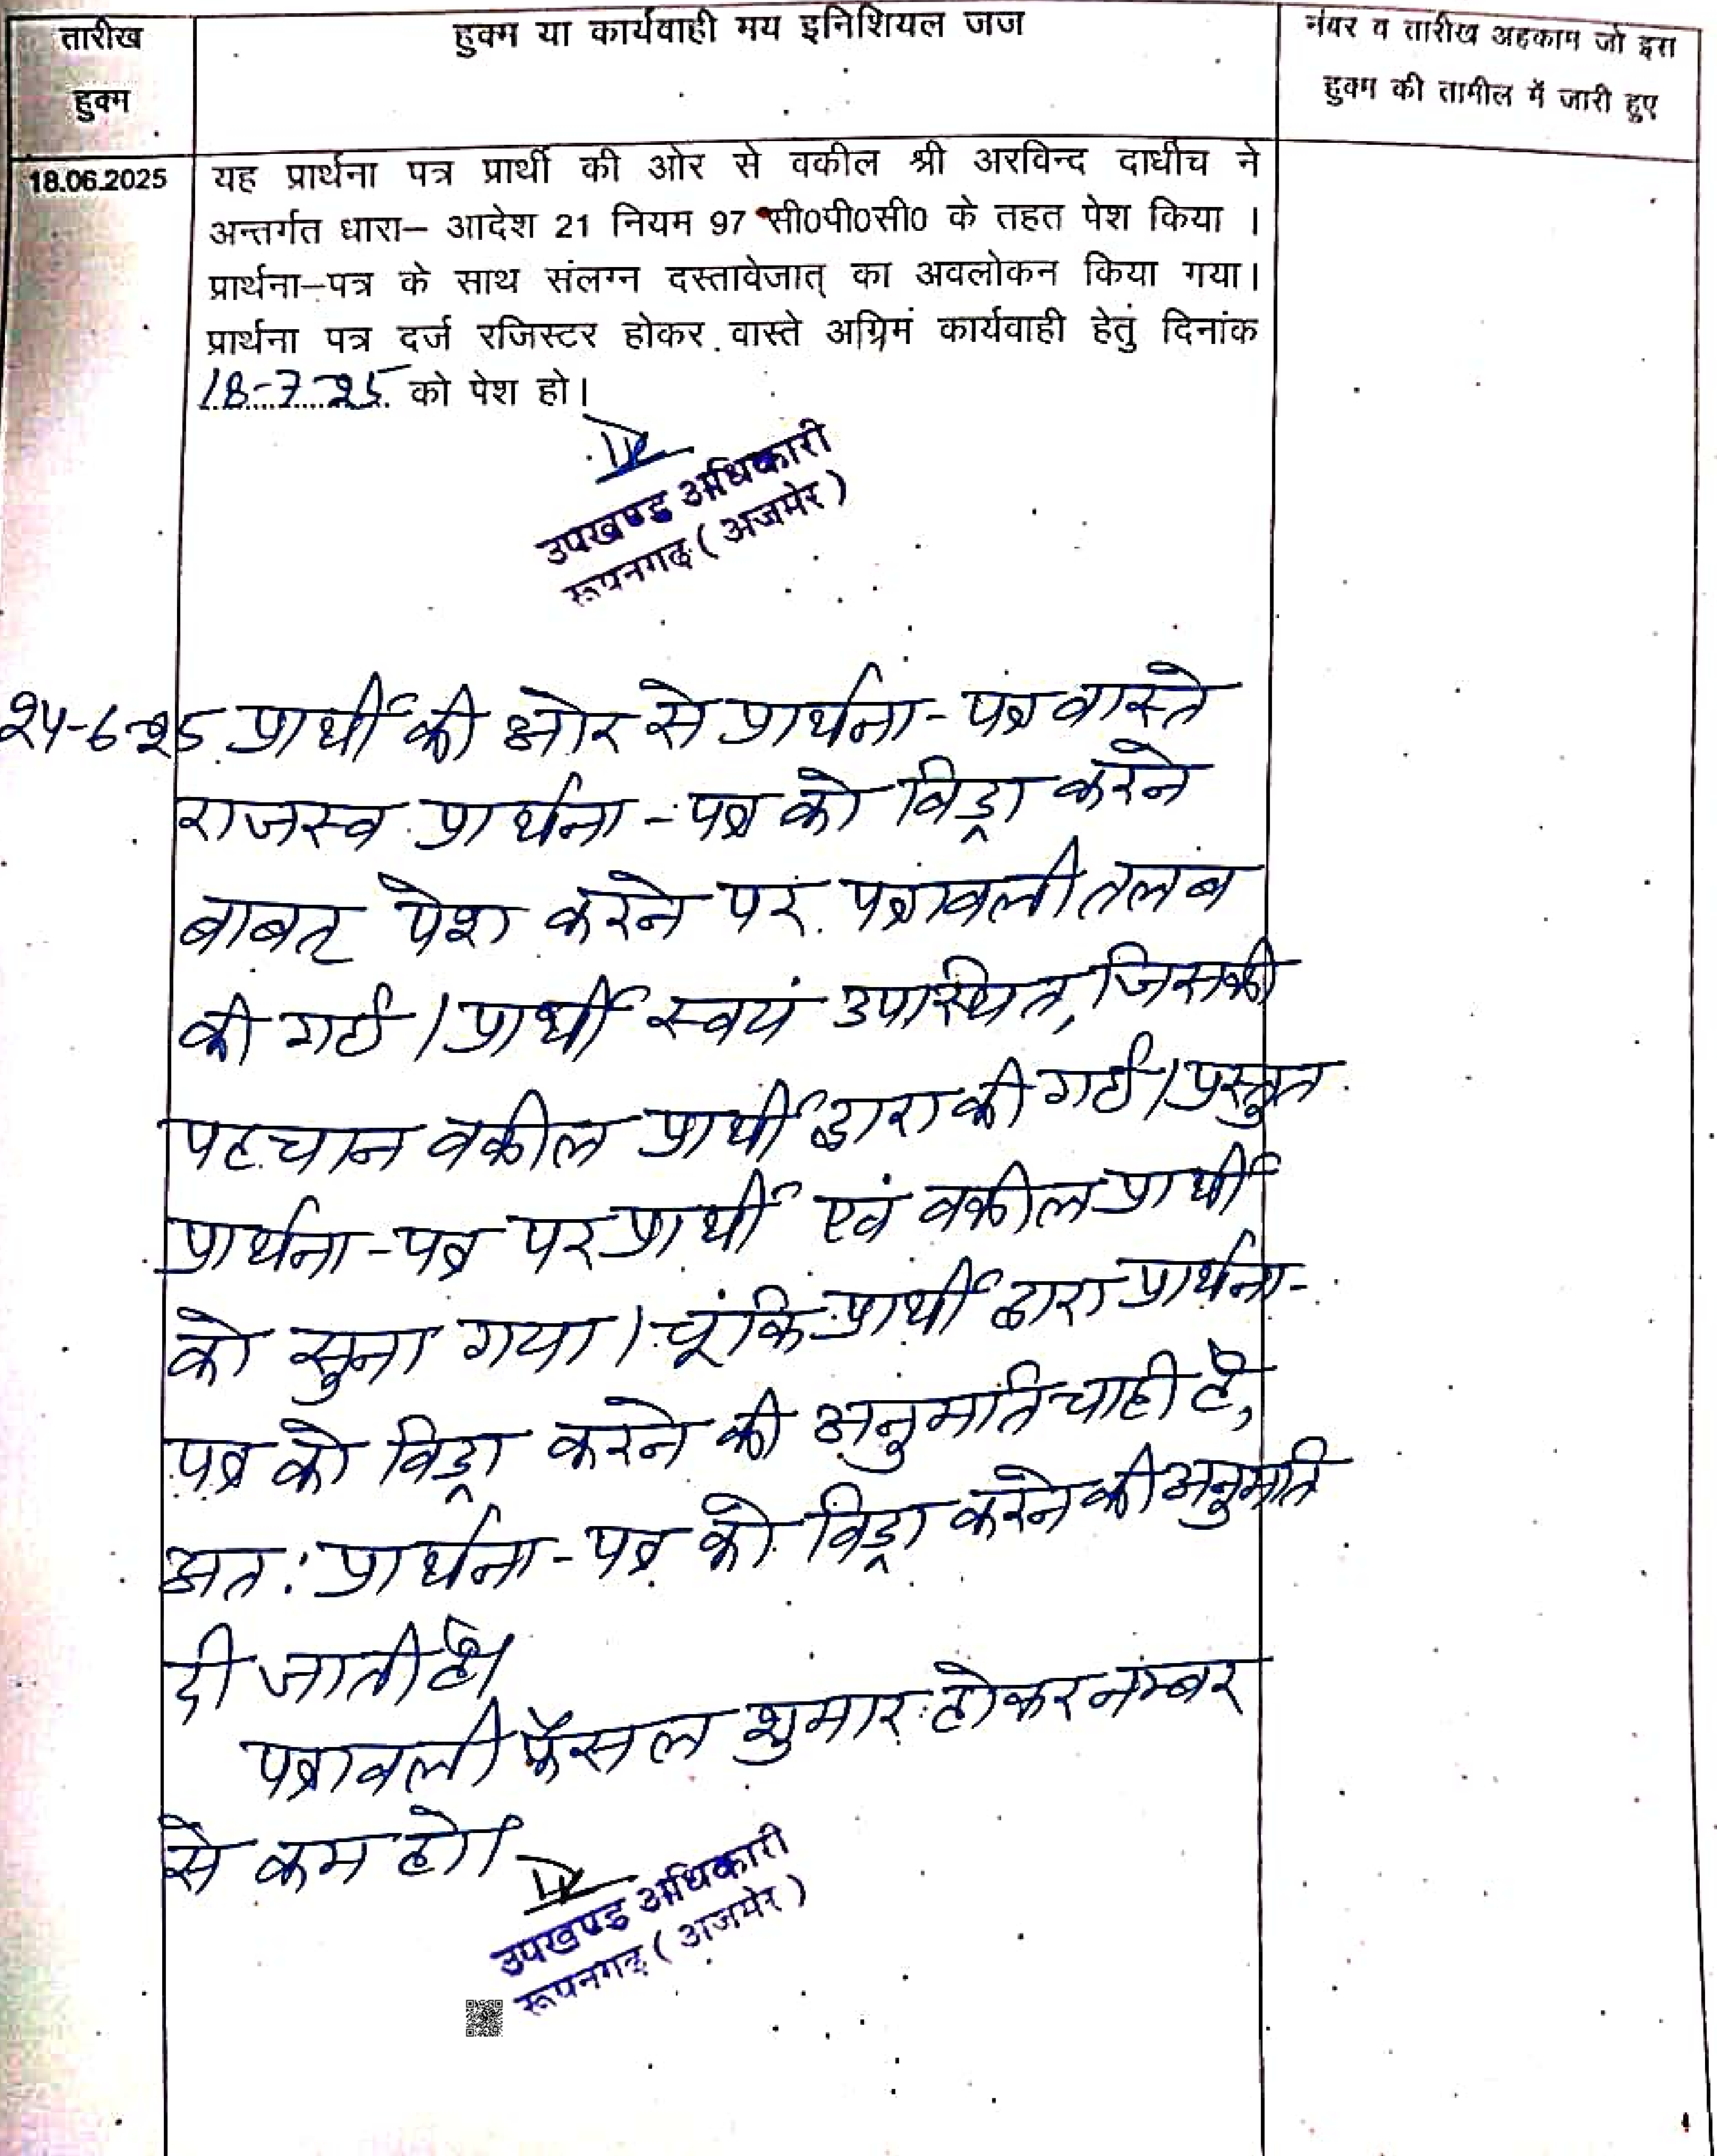 तारीख
हुक्म
हुक्म या कार्यवाही मय इनिशियल जज
नंबर व तारीख अहकाम जो इस
हुक्म की तामील में जारी हुए
18.06.2025
यह प्रार्थना पत्र प्रार्थी की ओर से वकील श्री अरविन्द दाधीच ने
अन्तर्गत धारा– आदेश 21 नियम 97 सी0पी0सी0 के तहत पेश किया ।
प्रार्थना–पत्र के साथ संलग्न दस्तावेजात् का अवलोकन किया गया।
प्रार्थना पत्र दर्ज रजिस्टर होकर वास्ते अग्रिमं कार्यवाही हेतुं दिनांक
18-7-25 को पेश हो।
उपखण्ड अधिकारी
रूपनगढ़ (अजमेर)
प्रार्थी की ओर से प्रार्थना-पत्र वास्ते
राजस्व प्रार्थना-पत्र को विड्रा करने
बाबत् पेश करने पर पत्रावली तलब
की गई। प्रार्थी स्वयं उपस्थित, जिसकी
पहचान वकील प्रार्थी द्वारा की गई। प्रस्तुत
प्रार्थना-पत्र पर प्रार्थी एवं वकील प्रार्थी
को सुना गया। चूंकि प्रार्थी द्वारा प्रार्थना-
पत्र को विड्रा करने की अनुमति चाही है,
अत: प्रार्थना-पत्र को विड्रा करने की अनुमति
दी जाती है।
पत्रावली फैसल शुमार होकर नम्बर
से कम हो।
उपखण्ड अधिकारी
रूपनगढ़ (अजमेर)